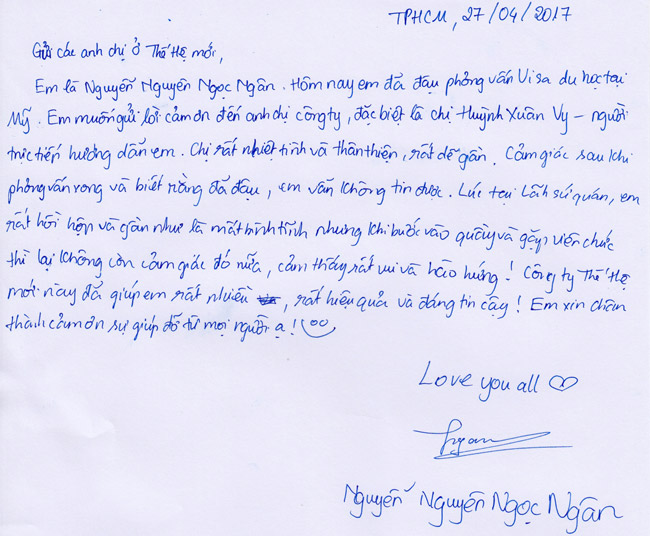 TPHCM, 27/04/2017
Gửi các anh chị ở Thế Hệ mới,
Em là Nguyễn Nguyên Ngọc Ngân. Hôm nay em đã đậu phỏng vấn Visa du học tại
Mỹ. Em muốn gửi lời cảm ơn đến anh chị công ty, đặc biệt là chị Huỳnh Xuân Vy – người
trực tiếp hướng dẫn em. Chị rất nhiệt tình và thân thiện, rất dễ gần. Cảm giác sau khi
phỏng vấn xong và biết rằng đã đậu, em vẫn không tin được. Lúc tại Lãnh sứ quán, em
rất hồi hộp và gần như là mất bình tĩnh nhưng khi bước vào quầy và gặp viên chức
thì lại không còn cảm giác đó nữa, cảm thấy rất vui và hào hứng! Công ty Thế Hệ
mới này đã giúp em rất nhiều, rất hiệu quả và đáng tin cậy! Em xin chân
thành cảm ơn sự giúp đỡ từ mọi người ạ!
Love you all
Ngan
Nguyễn Nguyên Ngọc Ngân